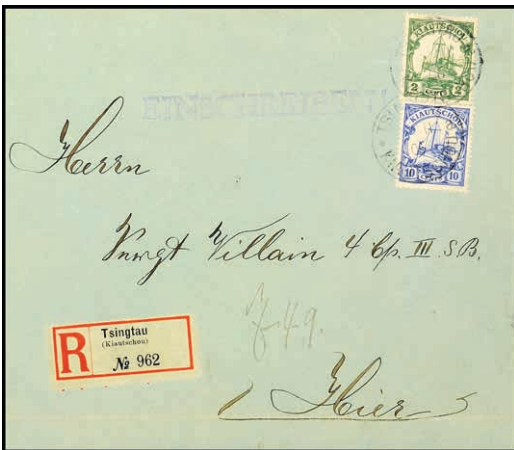 KIAUTSCHOU
2 2
KIAUTSCHOU
10 10
EINSCHREIBEN!
Herrn
Sergt Villain 4 Cp. III. S.B.
R
Tsingtau
(Kiautschou)
№ 962
Hier